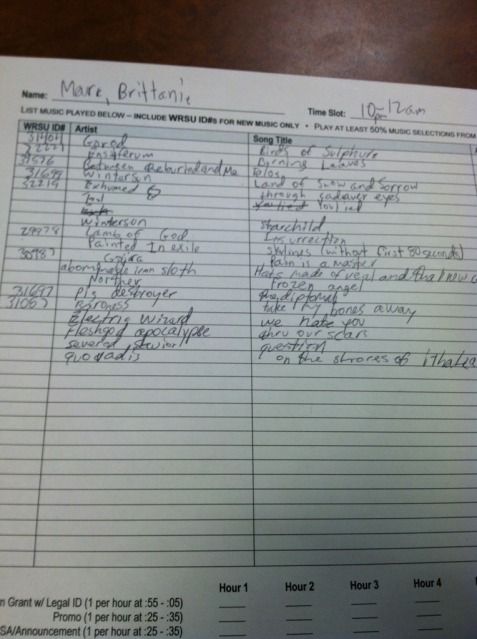 Name: Mark, Brittanie
Time Slot: 10pm-12am
LIST MUSIC PLAYED BELOW – INCLUDE WRSU ID#S FOR NEW MUSIC ONLY • PLAY AT LEAST 50% MUSIC SELECTIONS FROM
WRSU ID# Artist Song Title
31404 Gorod Birds of Sulphure
32227 Ensiferum Burning Leaves
31576 Between the buried and Me Telos
31699 Wintersun Land of Snow and Sorrow
32219 Exhumed through cadaver eyes
Tool You lied
Wintersun Starchild
29978 Lamb of God Insurrection
Painted In exile skylines (without first 80 seconds)
30987 Gojira Pain is a master
abominable iron sloth Hats made of veal and that new c
Norther Frozen angel
31697 Pig destroyer the diplomat
31057 Baroness take my bones away
Electric Wizard we hate you
Fleshgod apocalypse thru our scars
severed savior question
quo vadis on the shores of ithaka
Hour 1 Hour 2 Hour 3 Hour 4
n Grant w/ Legal ID (1 per hour at :55 - :05)
Promo (1 per hour at :25 - :35)
SA/Announcement (1 per hour at :25 - :35)